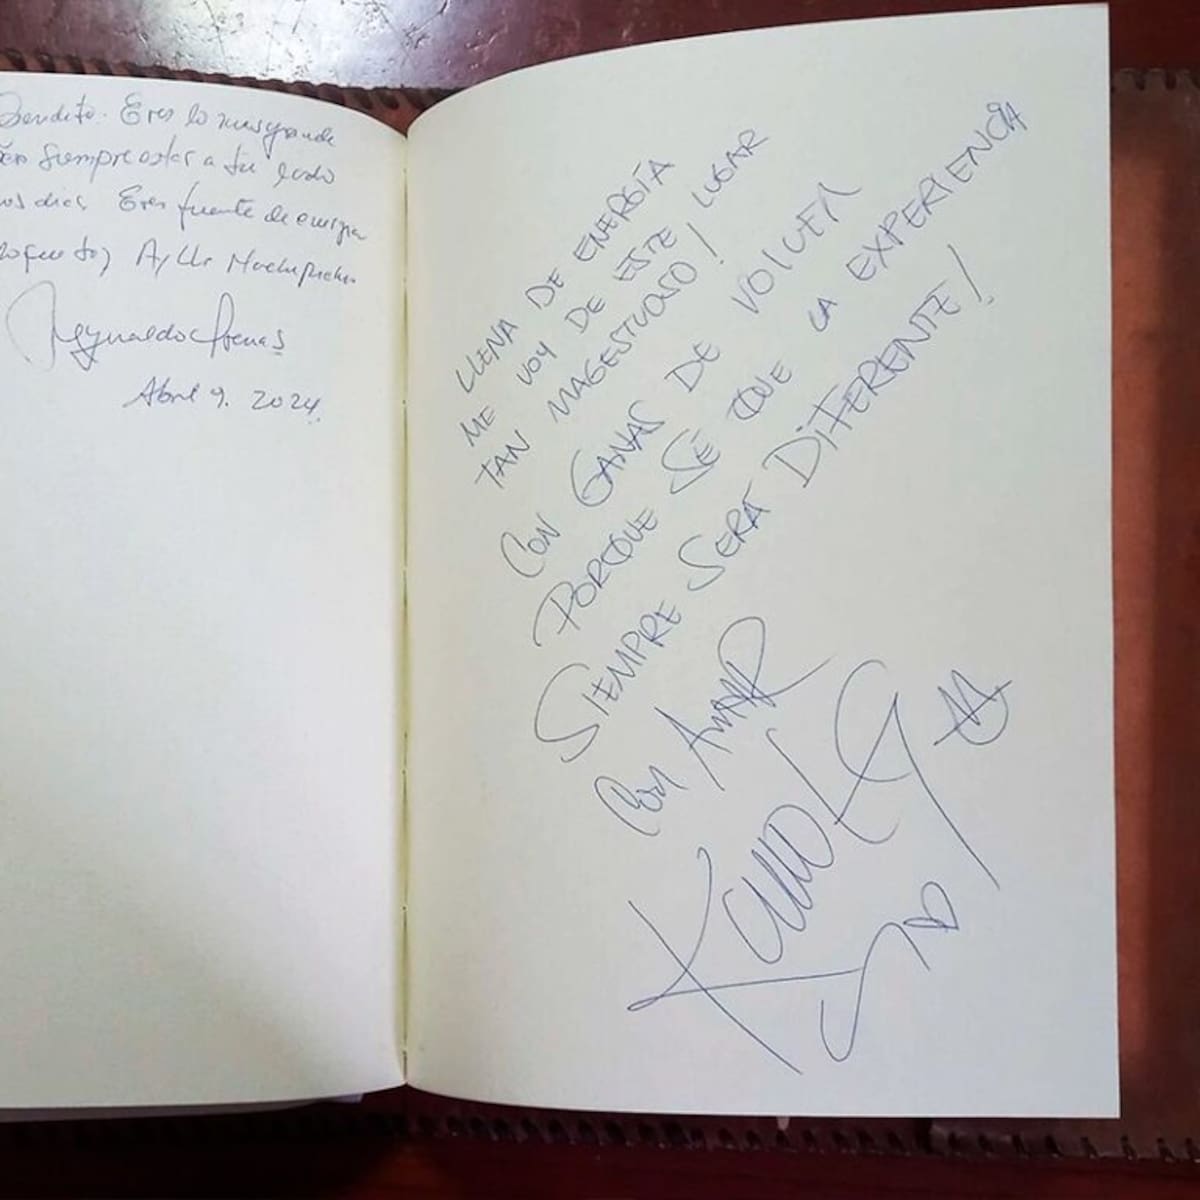 Bendito. Eres lo mas grande
siempre estar a tu lado
dias Eres fuente de energia
Machupicchu
Reynaldo Arenas
Abril 9. 2024
LLENA DE ENERGÍA
ME VOY DE ESTE LUGAR
TAN MAGESTUOSO!
CON GANAS DE VOLVER
PORQUE SÉ QUE LA EXPERIENCIA
SIEMPRE SERÁ DIFERENTE!
CON AMOR
KAROL G